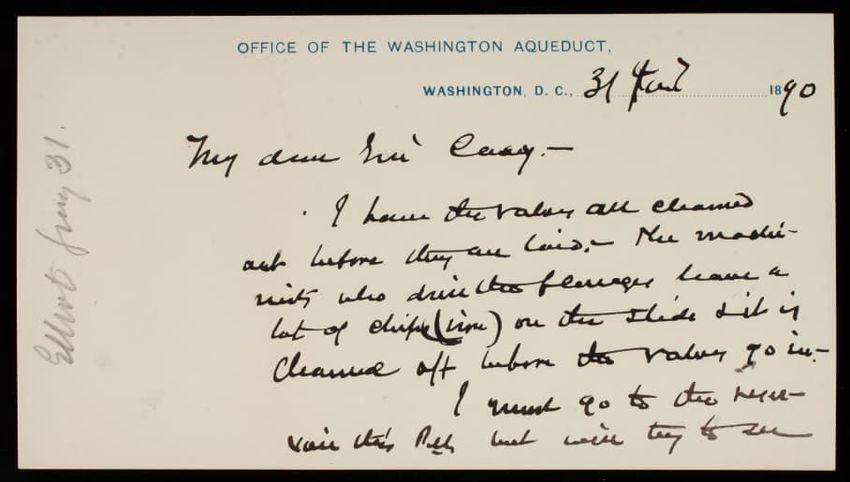 OFFICE OF THE WASHINGTON AQUEDUCT,
WASHINGTON, D. C., 31 Jany 1890
My dear Genl Casey. —
I have the valves all cleaned
out before they are laid. — The machi-
nists who drill the flanges leave a
lot of chips (iron) on the slide & it is
cleaned off before the valves go in. —
I must go to the reser-
voir this P.M. but will try to see
Elliot Jany 31.